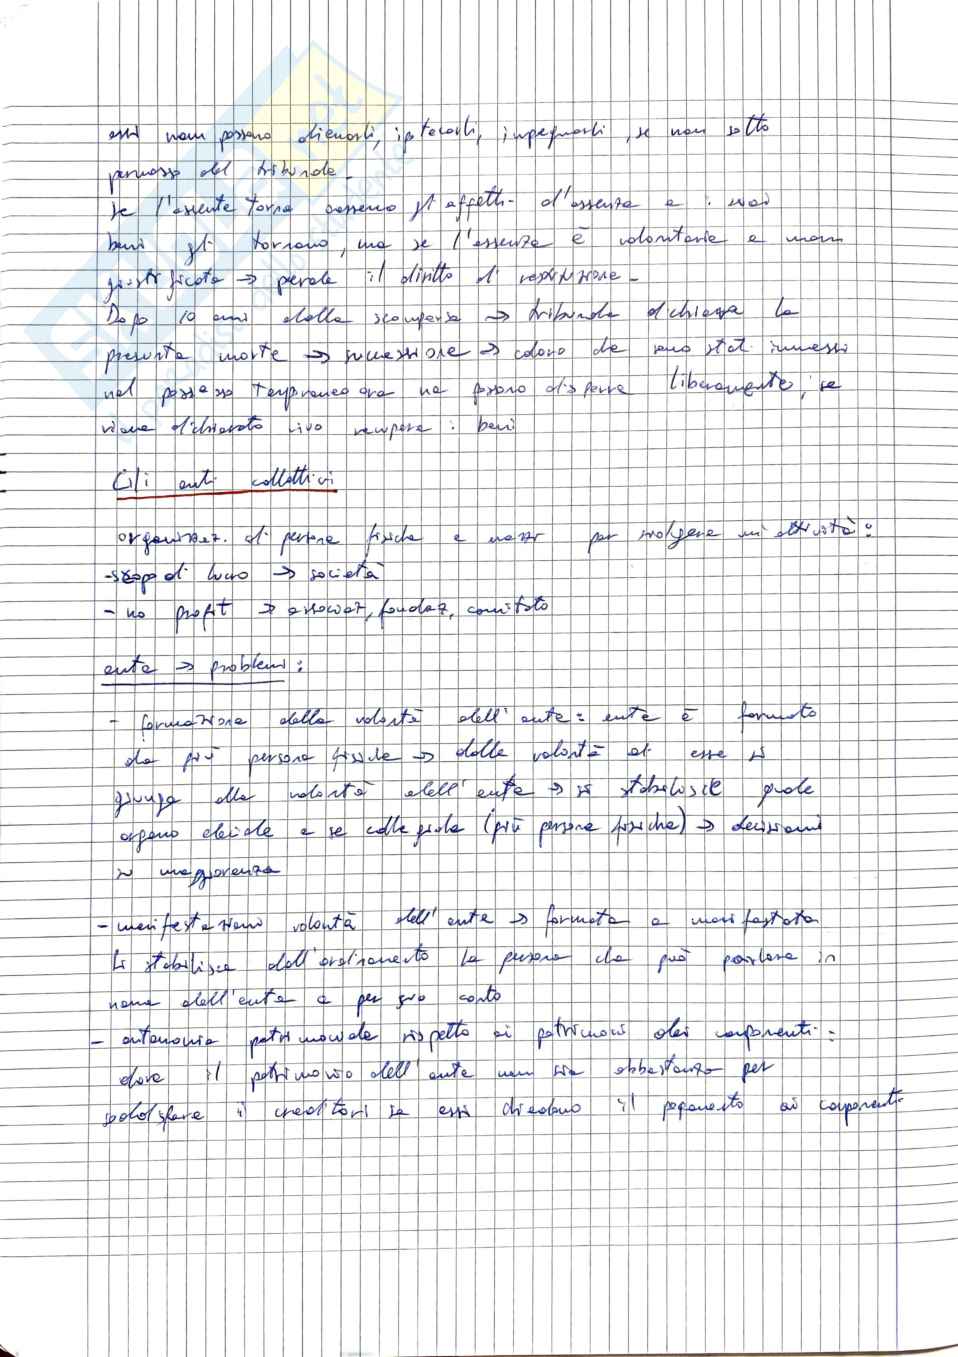 essi non possono alienarli, ipotecarli, impegnarli, se non sotto
permesso del tribunale.
Se l'assente torna cessano gli effetti dell'assenza e i suoi
beni gli tornano, ma se l'assenza è volontaria e non
giustificata → perde il diritto di restituzione.
Dopo 10 anni dalla scomparsa → tribunale dichiara la
presunta morte → successione → coloro che sono stati immessi
nel possesso temporaneo ora ne possono disporre liberamente; se
viene dichiarato vivo recupera i beni
Gli enti collettivi
organizzaz. di persone fisiche e mezzi per svolgere un'attività:
- scopo di lucro → società
- no profit → associaz, fondaz, comitato
ente → problemi:
- formazione della volontà dell'ente: ente è formato
da più persone fisiche → dalle volontà di esse si
giunge alla volontà dell'ente → si stabilisce quale
organo decide e se collegiale (più persone fisiche) → decisioni
a maggioranza
- manifestazioni volontà dell'ente → formata e manifestata
si stabilisce dall'ordinamento la persona che può parlare in
nome dell'ente e per suo conto
- autonomia patrimoniale rispetto ai patrimoni dei componenti:
dove il patrimonio dell'ente non sia abbastanza per
soddisfare i creditori se essi chiedono il pagamento ai componenti